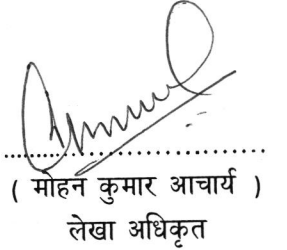 ....................................
( मोहन कुमार आचार्य )
लेखा अधिकृत